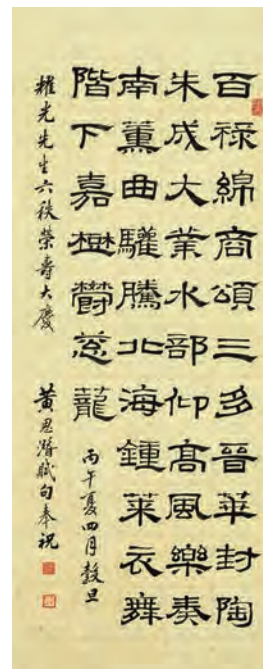 百祿綿商頌三多晉華封陶
朱成大業水部仰高風樂奏
南薰曲驩騰北海鍾萊衣舞
階下嘉樾鬱葱蘢
丙午夏四月穀旦
耀光先生六秩榮壽大慶
黃思潛賦句奉祝